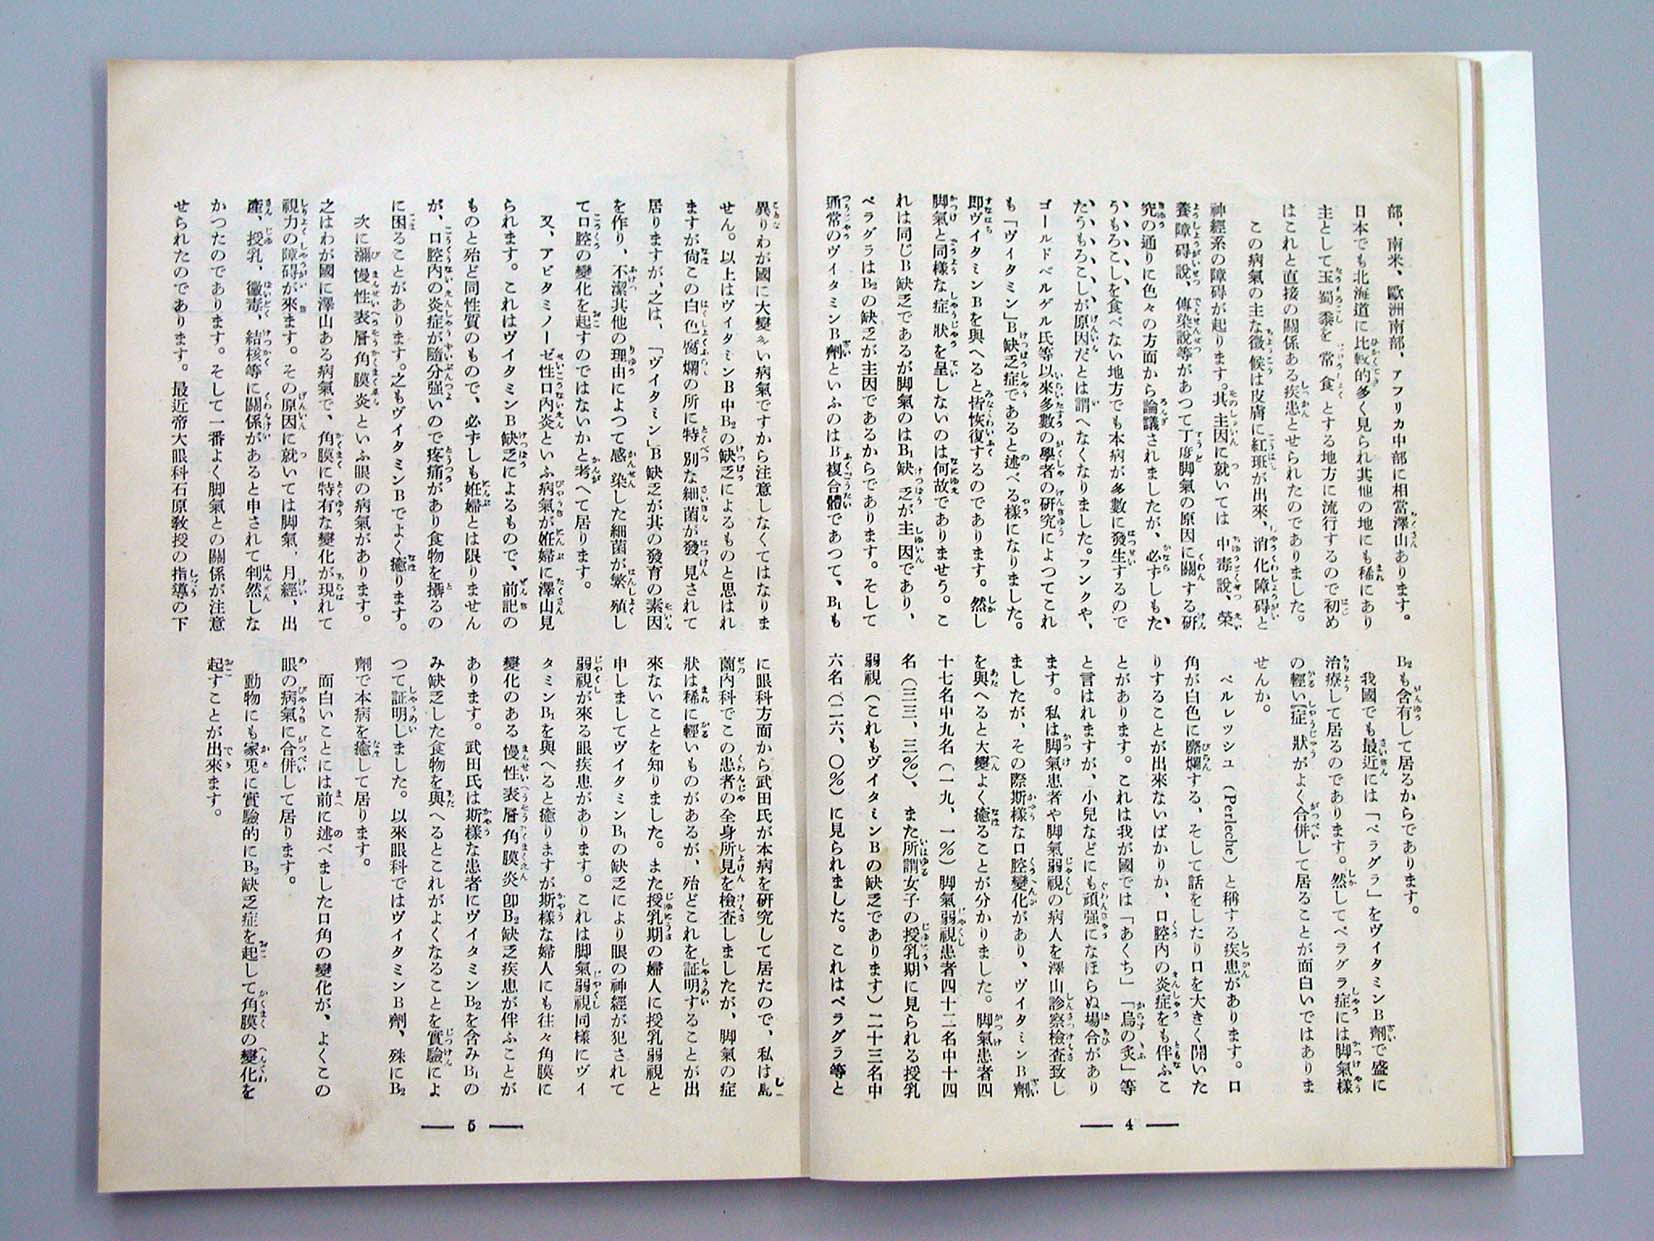 部、南米、歐洲南部、アフリカ中部に相當澤山あります。
日本でも北海道に比較的多く見られ其他の地にも稀にあり
主として玉蜀黍を常食とする地方に流行するので初め
はこれと直接の關係ある疾患とせられたのでありました。
この病氣の主な徴候は皮膚に紅斑が出來、消化障碍と
神經系の障碍が起ります。其主因に就いては中毒說、榮
養障碍說、傳染說等があつて丁度脚氣の原因に關する硏
究の通りに色々の方面から論議されましたが、必ずしもた
うもろこしを食べない地方でも本病が多數に發生するので
たうもろこしが原因だとは謂へなくなりました。フンクや、
ゴールドベルゲル氏等以來多數の學者の硏究によつてこれ
も「ヴイタミン」B缺乏症であると述べる樣になりました。
即ヴイタミンBを與へると皆恢復するのであります。然し
脚氣と同樣な症狀を呈しないのは何故でありませう。こ
れは同じB缺乏であるが脚氣のはB₁缺乏が主因であり、
ペラグラはB₂の缺乏が主因であるからであります。そして
通常のヴイタミンB劑といふのはB複合體であつて、B₁も
B₂も含有して居るからであります。
我國でも最近には「ペラグラ」をヴイタミンB劑で盛に
治療して居るのであります。然してペラグラ症には脚氣樣
の輕い症狀がよく合併して居ることが面白いではありま
せんか。
ペルレッシユ(Perleche)と稱する疾患があります。口
角が白色に糜爛する、そして話をしたり口を大きく開いた
りすることが出來ないばかりか、口腔内の炎症をも伴ふこ
とがあります。これは我が國では「あくち」「烏の灸」等
と言はれますが、小兒などにも頑强になほらぬ場合があり
ます。私は脚氣患者や脚氣弱視の病人を澤山診察檢査致し
ましたが、その際斯樣な口腔變化があり、ヴイタミンB劑
を與へると大變よく癒ることが分かりました。脚氣患者四
十七名中九名(一九、一%)脚氣弱視患者四十二名中十四
名(三三、三%)、また所謂女子の授乳期に見られる授乳
弱視(これもヴイタミンBの缺乏であります)二十三名中
六名(二六、〇%)に見られました。これはペラグラ等と
4
異りわが國に大變多い病氣ですから注意しなくてはなりま
せん。以上はヴイタミンB中B₂の缺乏によるものと思はれ
ますが尙この白色腐爛の所に特別な細菌が發見されて
居りますが、之は、「ヴイタミン」B缺乏が其の發育の素因
を作り、不潔其他の理由によつて感染した細菌が繁殖し
て口腔の變化を起すのではないかと考へて居ります。
又、アビタミノーゼ性口內炎といふ病氣が姙婦に澤山見
られます。これはヴイタミンB缺乏によるもので、前記の
ものと殆ど同性質のもので、必ずしも姙婦とは限りません
が、口腔內の炎症が隨分强いので疼痛があり食物を攝るの
に困ることがあります。之もヴイタミンBでよく癒ります。
次に瀰慢性表層角膜炎といふ眼の病氣があります。
之はわが國に澤山ある病氣で、角膜に特有な變化が現れて
視力の障碍が來ます。その原因に就いては脚氣、月經、出
產、授乳、黴毒、結核等に關係があると申されて判然しな
かつたのであります。そして一番よく脚氣との關係が注意
せられたのであります。最近帝大眼科石原敎授の指導の下
に眼科方面から武田氏が本病を研究して居たので、私は島
薗內科でこの患者の全身所見を檢査しましたが、脚氣の症
狀は稀に輕いものがあるが、殆どこれを証明することが出
來ないことを知りました。また授乳期の婦人に授乳弱視と
申しましてヴイタミンB₁の缺乏により眼の神經が犯されて
弱視が來る眼疾患があります。これは脚氣弱視同樣にヴイ
タミンB₁を與へると癒りますが斯樣な婦人にも往々角膜に
變化のある慢性表層角膜炎卽B₂缺乏疾患が伴ふことが
あります。武田氏は斯樣な患者にヴイタミンB₂を含みB₁の
み缺乏した食物を與へるとこれがよくなることを實驗によ
つて証明しました。以來眼科ではヴイタミンB劑、殊にB₂
劑で本病を癒して居ります。
面白いことには前に述べました口角の變化が、よくこの
眼の病氣に合併して居ります。
動物にも家兎に實驗的にB₂缺乏症を起して角膜の變化を
起すことが出來ます。
5